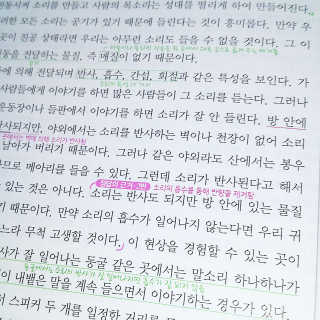 시면서 소리를 만들고 사람의 목소리는 성대를 떨리게 하여 만들어진다.
려면 모든 소리는 공기가 있기 때문에 들린다는 것이 흥미롭다. 만약 우
곳이 진공 상태라면 우리는 아무런 소리도 들을 수 없을 것이다. 그 이
진동을 전달하는 물질, 즉 매질이 없기 때문이다.
에 의해 전달되며 반사, 흡수, 간섭, 회절과 같은 특성을 보인다. 가
사람들에게 이야기를 하면 많은 사람들이 그 소리를 듣는다. 그러나
운동장이나 들판에서 이야기를 하면 소리가 잘 안 들린다. 방 안에
사되지만, 야외에서는 소리를 반사하는 벽이나 천장이 없어 소리
날아가 버리기 때문이다. 그러나 같은 야외라도 산에서는 봉우
므로 메아리를 들을 수 있다. 그런데 소리가 반사된다고 해서
소리의 흡수를 통해 반향을 제거함
있는 것은 아니다. 소리는 반사도 되지만 방 안에 있는 물질
기 때문이다. 만약 소리의 흡수가 일어나지 않는다면 우리 귀
느라 무척 고생할 것이다. 이 현상을 경험할 수 있는 곳이
사가 잘 일어나는 동굴 같은 곳에서는 말소리 하나하나가
이 내뱉은 말을 계속 들으면서 이야기하는 경우가 있다.
서 스피커 두 개를 일정한 거리로